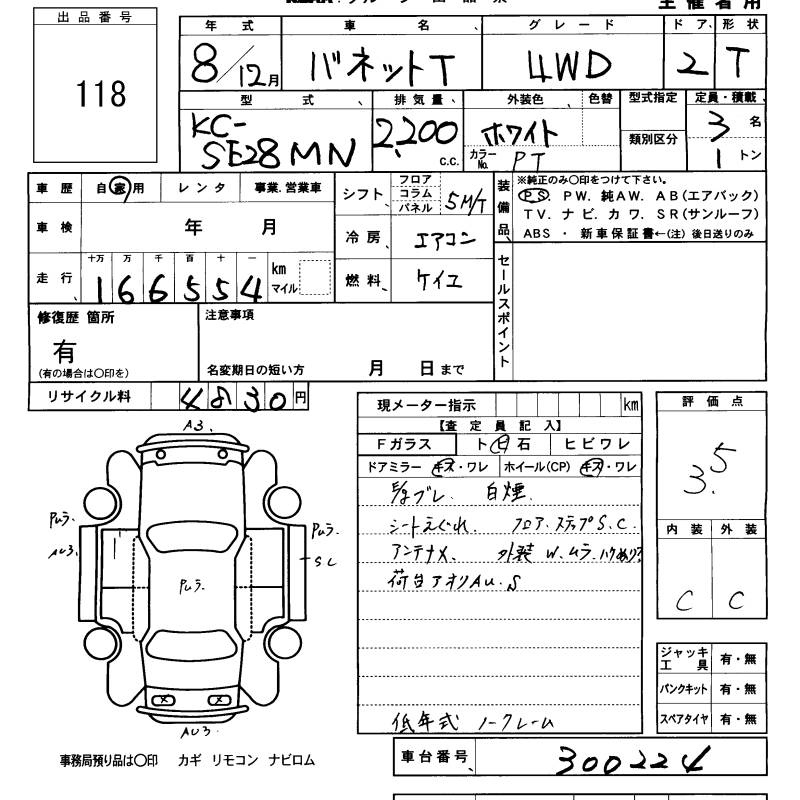 主催者用
出品番号
118
年式 車名 グレード ドア、形状
8/12月 バネットT 4WD 2 T
型式、 排気量、 外装色、 色替 型式指定 定員・積載、
KC-SE28MN 2,200 c.c. ホワイト 類別区分 3名
カラーNo. PT 1トン
車歴 自家用 レンタ 事業.営業車
車検 年 月
走行、 十万 万 千 百 十 一
166554 km マイル
シフト フロア コラム パネル 5M/T
冷房 エアコン
燃料、 ケイユ
装備品、
※純正のみ〇印をつけて下さい。
PS. PW. 純AW. AB(エアバック)
TV. ナビ. カワ. SR(サンルーフ)
ABS ・ 新車保証書←(注) 後日送りのみ
セールスポイント
修復歴 箇所
有
(有の場合は〇印を)
注意事項
名変期日の短い方 月 日まで
リサイクル料 4830円
現メーター指示 km
【査定員記入】
Fガラス ト曰石 ヒビワレ
ドアミラー キズ・ワレ ホイール(CP) キズ・ワレ
ブレ. 白煙.
シートえぐれ. フロア.ステップS.C.
アンテナメ. 外装 W.ムラ.ハケあり?
荷台アオリAu.S
低年式 ノークレーム
評価点
3.5
内装 外装
C C
ジャッキ工具 有・無
パンクキット 有・無
スペアタイヤ 有・無
車台番号、 300224
A3.
Puラ. Puラ.
AU3. SC
Puラ.
AU3.
事務局預り品は〇印 カギ リモコン ナビロム